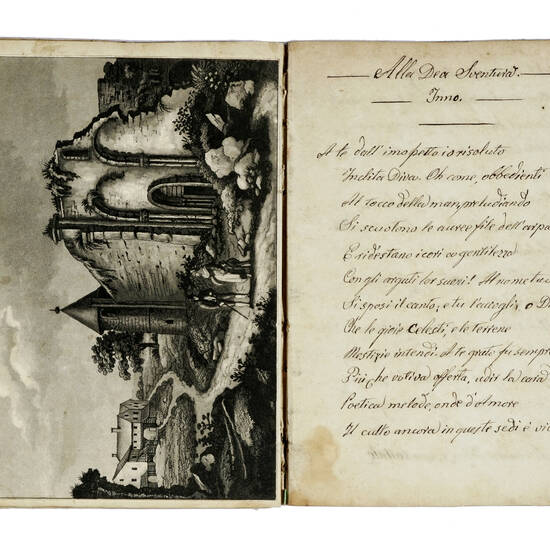 Alla Dea Sventura.
Inno.
A te dall' imo petto io risoluto
Inclita Diva. Oh come, obbedienti
Al tocco della man, preludiando
Si scuotono le auree file dell' arpa
E ridestano i cori a gentilezza
Con gli arguti lor suoni! Al nome tuo
Si sposi il canto, e tu l'accogli, o D
Che le gioie Celesti, e le terrene
Mestizie intendi. A te grato fu sempre
Più che votiva offerta, udir la cara
Poetica melode, onde d'amore
Il culto ancora in queste sedi è vi